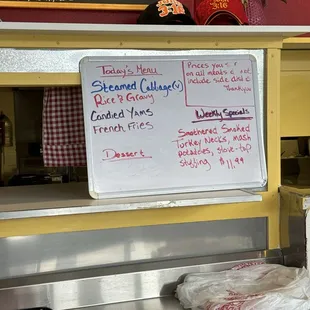 Today's Menu
Steamed Cabbage (V)
Rice & Gravy
Candied Yams
French Fries
Dessert
Prices
on all meals do not
include side
Thank you
Weekly Specials
Smothered Smoked
Turkey Necks, mash
potatoes, stove-top
stuffing $11.99
3:16